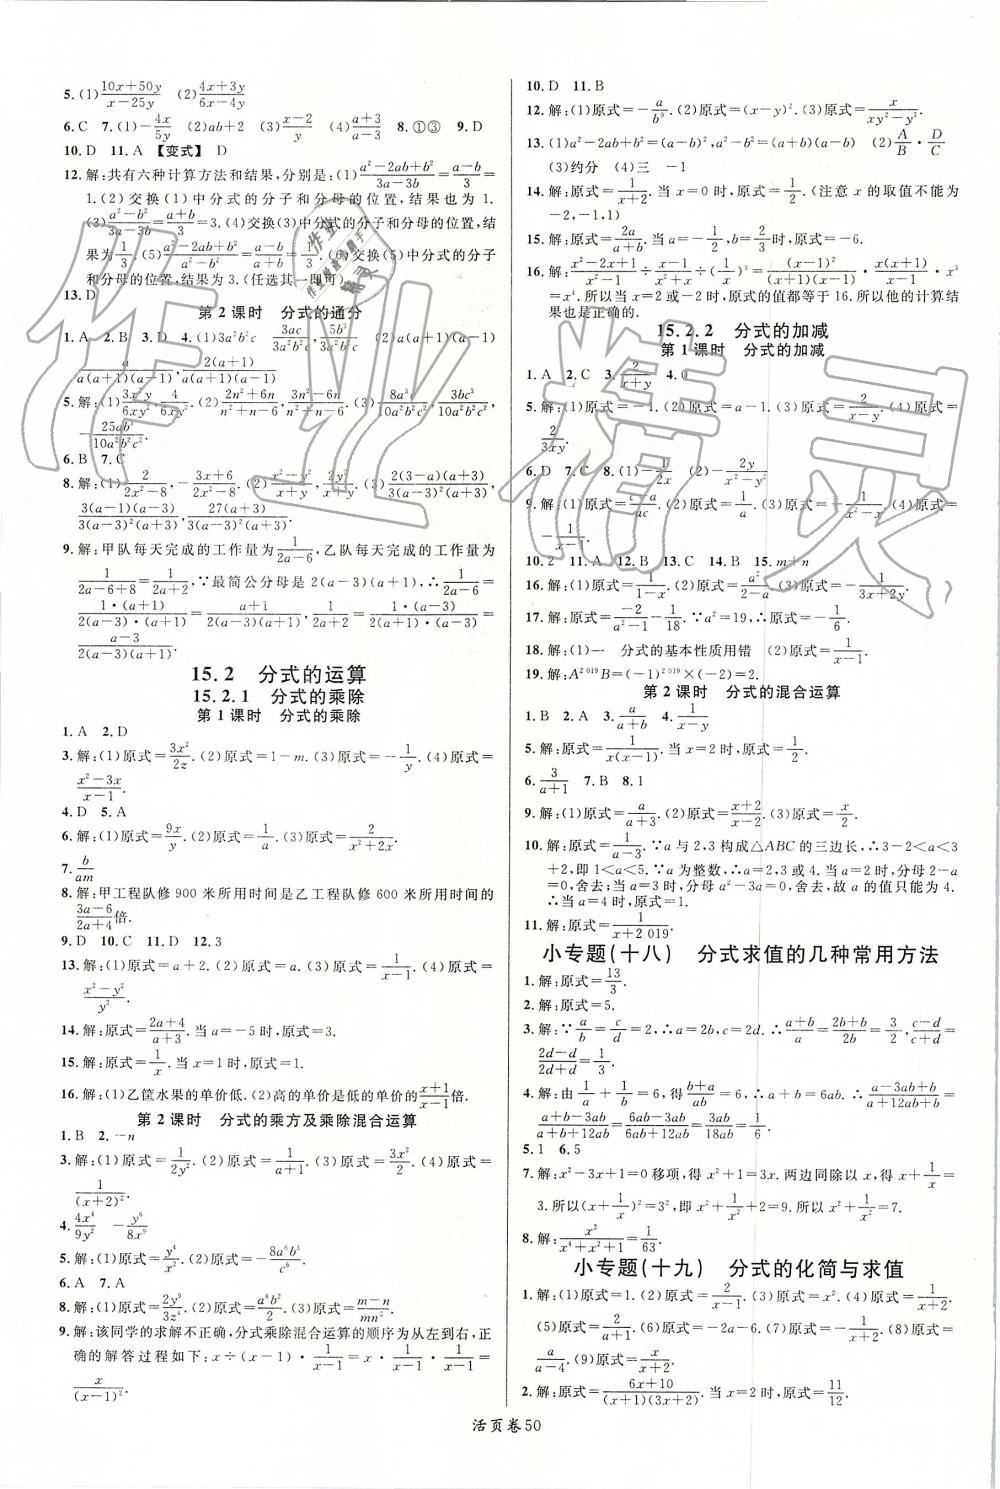 5. (1)(10x+50y)/(x-25y)  (2)(4x+3y)/(6x-4y)
6. C  7. (1)-4x/5y  (2)ab+2  (3)(x-2)/y  (4)(a+3)/(a-3)  8. ①③  9. D
10. D  11. A  【变式】 D
12. 解:共有六种计算方法和结果,分别是:(1)(a²-2ab+b²)/(3a-3b)=(a-b)/3
1.(2)交换(1)中分式的分子和分母的位置,结果也为 1.
(3)(a²-b²)/(3a-3b)=(a+b)/3.(4)交换(3)中分式的分子和分母的位置,结
果为1/3.(5)(a²-2ab+b²)/(a²-b²)=(a-b)/(a+b)=1/3.(6)交换(5)中分式的分子
和分母的位置,结果为 3.(任选其一即可)
13. D
第 2 课时  分式的通分
1. A  2. B  3. D  4. (1)3a²b²c  3ac/3a²b²c,5b³/3a²b²c  (2)a(a+1)(a-1)
a/(a(a+1)(a-1)),2(a+1)/(a(a+1)(a-1))
5. 解:(1)3x²y/6xy²,4/6xy².(2)(2n²+6n)/(n²+n-6),(3n²-6n)/(n²+n-6).(3)8a³/10a²b²c²,3bc³/10a²b²c²,
-25ab³/10a²b²c².
6. B  7. C
8. 解:(1)2/(2x²-8),-(3x+6)/(2x²-8).(2)(x²-y²)/(x+y),2y²/(x+y).(3)2(3-a)(a+3)/(3(a-3)²(a+3)),
3(a-1)(a-3)/(3(a-3)²(a+3)),27(a+3)/(3(a-3)²(a+3)).
9. 解:甲队每天完成的工作量为1/(2a-6),乙队每天完成的工作量为
1/(2a-6+8)=1/(2a+2),∵最简公分母是 2(a-3)(a+1),∴1/(2a-6)=
1·(a+1)/(2(a-3)·(a+1))=(a+1)/(2(a-3)(a+1)),1/(2a+2)=1·(a-3)/(2(a+1)·(a-3))=
(a-3)/(2(a-3)(a+1)).
15.2  分式的运算
15.2.1  分式的乘除
第 1 课时  分式的乘除
1. A  2. D
3. 解:(1)原式=3x²/2z.(2)原式=1-m.(3)原式=-1/y.(4)原式=
(x²-3x)/(x-1).
4. D  5. A
6. 解:(1)原式=9x/y.(2)原式=1/a.(3)原式=2/(x²+2x).
7. b/am
8. 解:甲工程队修 900 米所用时间是乙工程队修 600 米所用时间的
(3a-6)/(2a+4)倍.
9. D  10. C  11. D  12. 3
13. 解:(1)原式=a+2.(2)原式=a.(3)原式=-x/(x-1).(4)原式=
(x²-y²)/y².
14. 解:原式=(2a+4)/(a+3).当 a=-5时,原式=3.
15. 解:原式=1/x.当 x=1时,原式=1.
16. 解:(1)乙筐水果的单价低.(2)高的单价是低的单价的(x+1)/(x-1)倍.
第 2 课时  分式的乘方及乘除混合运算
1. B  2. -n
3. 解:(1)原式=1/2y².(2)原式=1/(a+1).(3)原式=3x²/2.(4)原式=
1/(x+2)².
4. 4x⁴/9y²  -y⁶/8x⁹
5. 解:(1)原式=y⁴/x².(2)原式=-8a⁶b³/c⁶.
6. A  7. A
8. 解:(1)原式=2y⁹/3z⁴.(2)原式=a⁸b²/2.(3)原式=(m-n)/mn².
9. 解:该同学的求解不正确,分式乘除混合运算的顺序为从左到右,正
确的解答过程如下:x÷(x-1)·1/(x-1)=x·1/(x-1)·1/(x-1)=
x/(x-1)².
10. D  11. B
12. 解:(1)原式=-a/b⁹.(2)原式=(x-y)².(3)原式=x/(xy²-y³).
13. (1)a²-2ab+b²=(a-b)²,a²-b²=(a+b)(a-b)  (2)A/B·D/C
(3)约分  (4)三  -1
14. 解:原式=1/(x+2).当 x=0时,原式=1/2.(注意 x 的取值不能为
-2,-1,1)
15. 解:原式=2a/(a+b).当 a=-1,b=2/3时,原式=-6.
16. 解:(x²-2x+1)/(x²-1)÷(x-1)/(x²+x)÷(1/x)³=(x-1)²/((x+1)(x-1))·x(x+1)/(x-1)·x³
=x⁴.所以当 x=2或 x=-2时,原式的值都等于 16.所以他的计算结
果也是正确的.
15.2.2  分式的加减
第 1 课时  分式的加减
1. A  2. C  3. 2/(x+y)  4. 0
5. 解:(1)原式=-1.(2)原式=a-1.(3)原式=2/(x-y).(4)原式=
2/3xy.
6. D  7. C  8. (1)-1/x  (2)-2y/(x²-y²)
9. 解:(1)原式=(c-a)/ac.(2)原式=a/(a-b).(3)原式=1/(x²-x).(4)原式=
-1/(x-1).
10. 2  11. A  12. B  13. C  14. B  15. m+n
16. 解:(1)原式=1/(1-x).(2)原式=2/(2-a).(3)原式=1/(3x+2y).
17. 解:原式=-2/(a²-1)-1/18.当 a=-2时,原式=-1/6.
18. 解:(1)一  分式的基本性质用错  (2)原式=1/(x-1).
19. 解:A²⁰¹⁹B=(-1)²⁰¹⁹×(-2)=2.
第 2 课时  分式的混合运算
1. B  2. A  3. a/(a+b)  4. 1/(x-y)
5. 解:原式=1/(x(x-1)).当 x=2时,原式=1/2.
6. 3/(a+1)  7. B  8. 1
9. 解:(1)原式=a/(a+3).(2)原式=(x+2)/(x-2).(3)原式=x/2.
10. 解:原式=1/(a-3).∵a 与 2,3 构成△ABC 的三边长,∴3-2<a<3
+2,即 1<a<5.∵a 为整数,∴a=2,3 或 4.当 a=2时,分母 2-a
=0,舍去;当 a=3时,分母 a²-3a=0,舍去,故 a 的值只能为 4.
∴当 a=4时,原式=1.
11. 解:原式=1/(x+2 019).
小专题(十八)  分式求值的几种常用方法
1. 解:原式=13/3.
2. 解:原式=5.
3. 解:∵a/b=c/d=2,∴a=2b,c=2d.∴(a+b)/a=(2b+b)/2b=3/2,(c-d)/(c+d)=
(2d-d)/(2d+d)=1/3.
4. 解:由1/a+1/b=6,得(b+a)/ab=6.∴a+b=6ab.∴(a-3ab+b)/(a+12ab+b)=
(a+b-3ab)/(a+b+12ab)=(6ab-3ab)/(6ab+12ab)=3ab/18ab=1/6.
5. 1  6. 5
7. 解:x²-3x+1=0移项,得 x²+1=3x.两边同除以 x,得 x+1/x=
3.所以(x+1/x)²=3²,即 x²+1/x²+2=9.所以 x²+1/x²=7.
8. 解:x²/(x⁴+x²+1)=1/63.
小专题(十九)  分式的化简与求值
1. 解:(1)原式=1.(2)原式=2/(x-1).(3)原式=x².(4)原式=1/(x+2).
(5)原式=2/(a+1).(6)原式=-2a-6.(7)原式=-1/a.(8)原式=
a/(a-4).(9)原式=x/(x+2).
2. 解:原式=(6x+10)/((x+1)(3x+2)).当 x=2时,原式=11/12.
活页卷 50
作业精灵